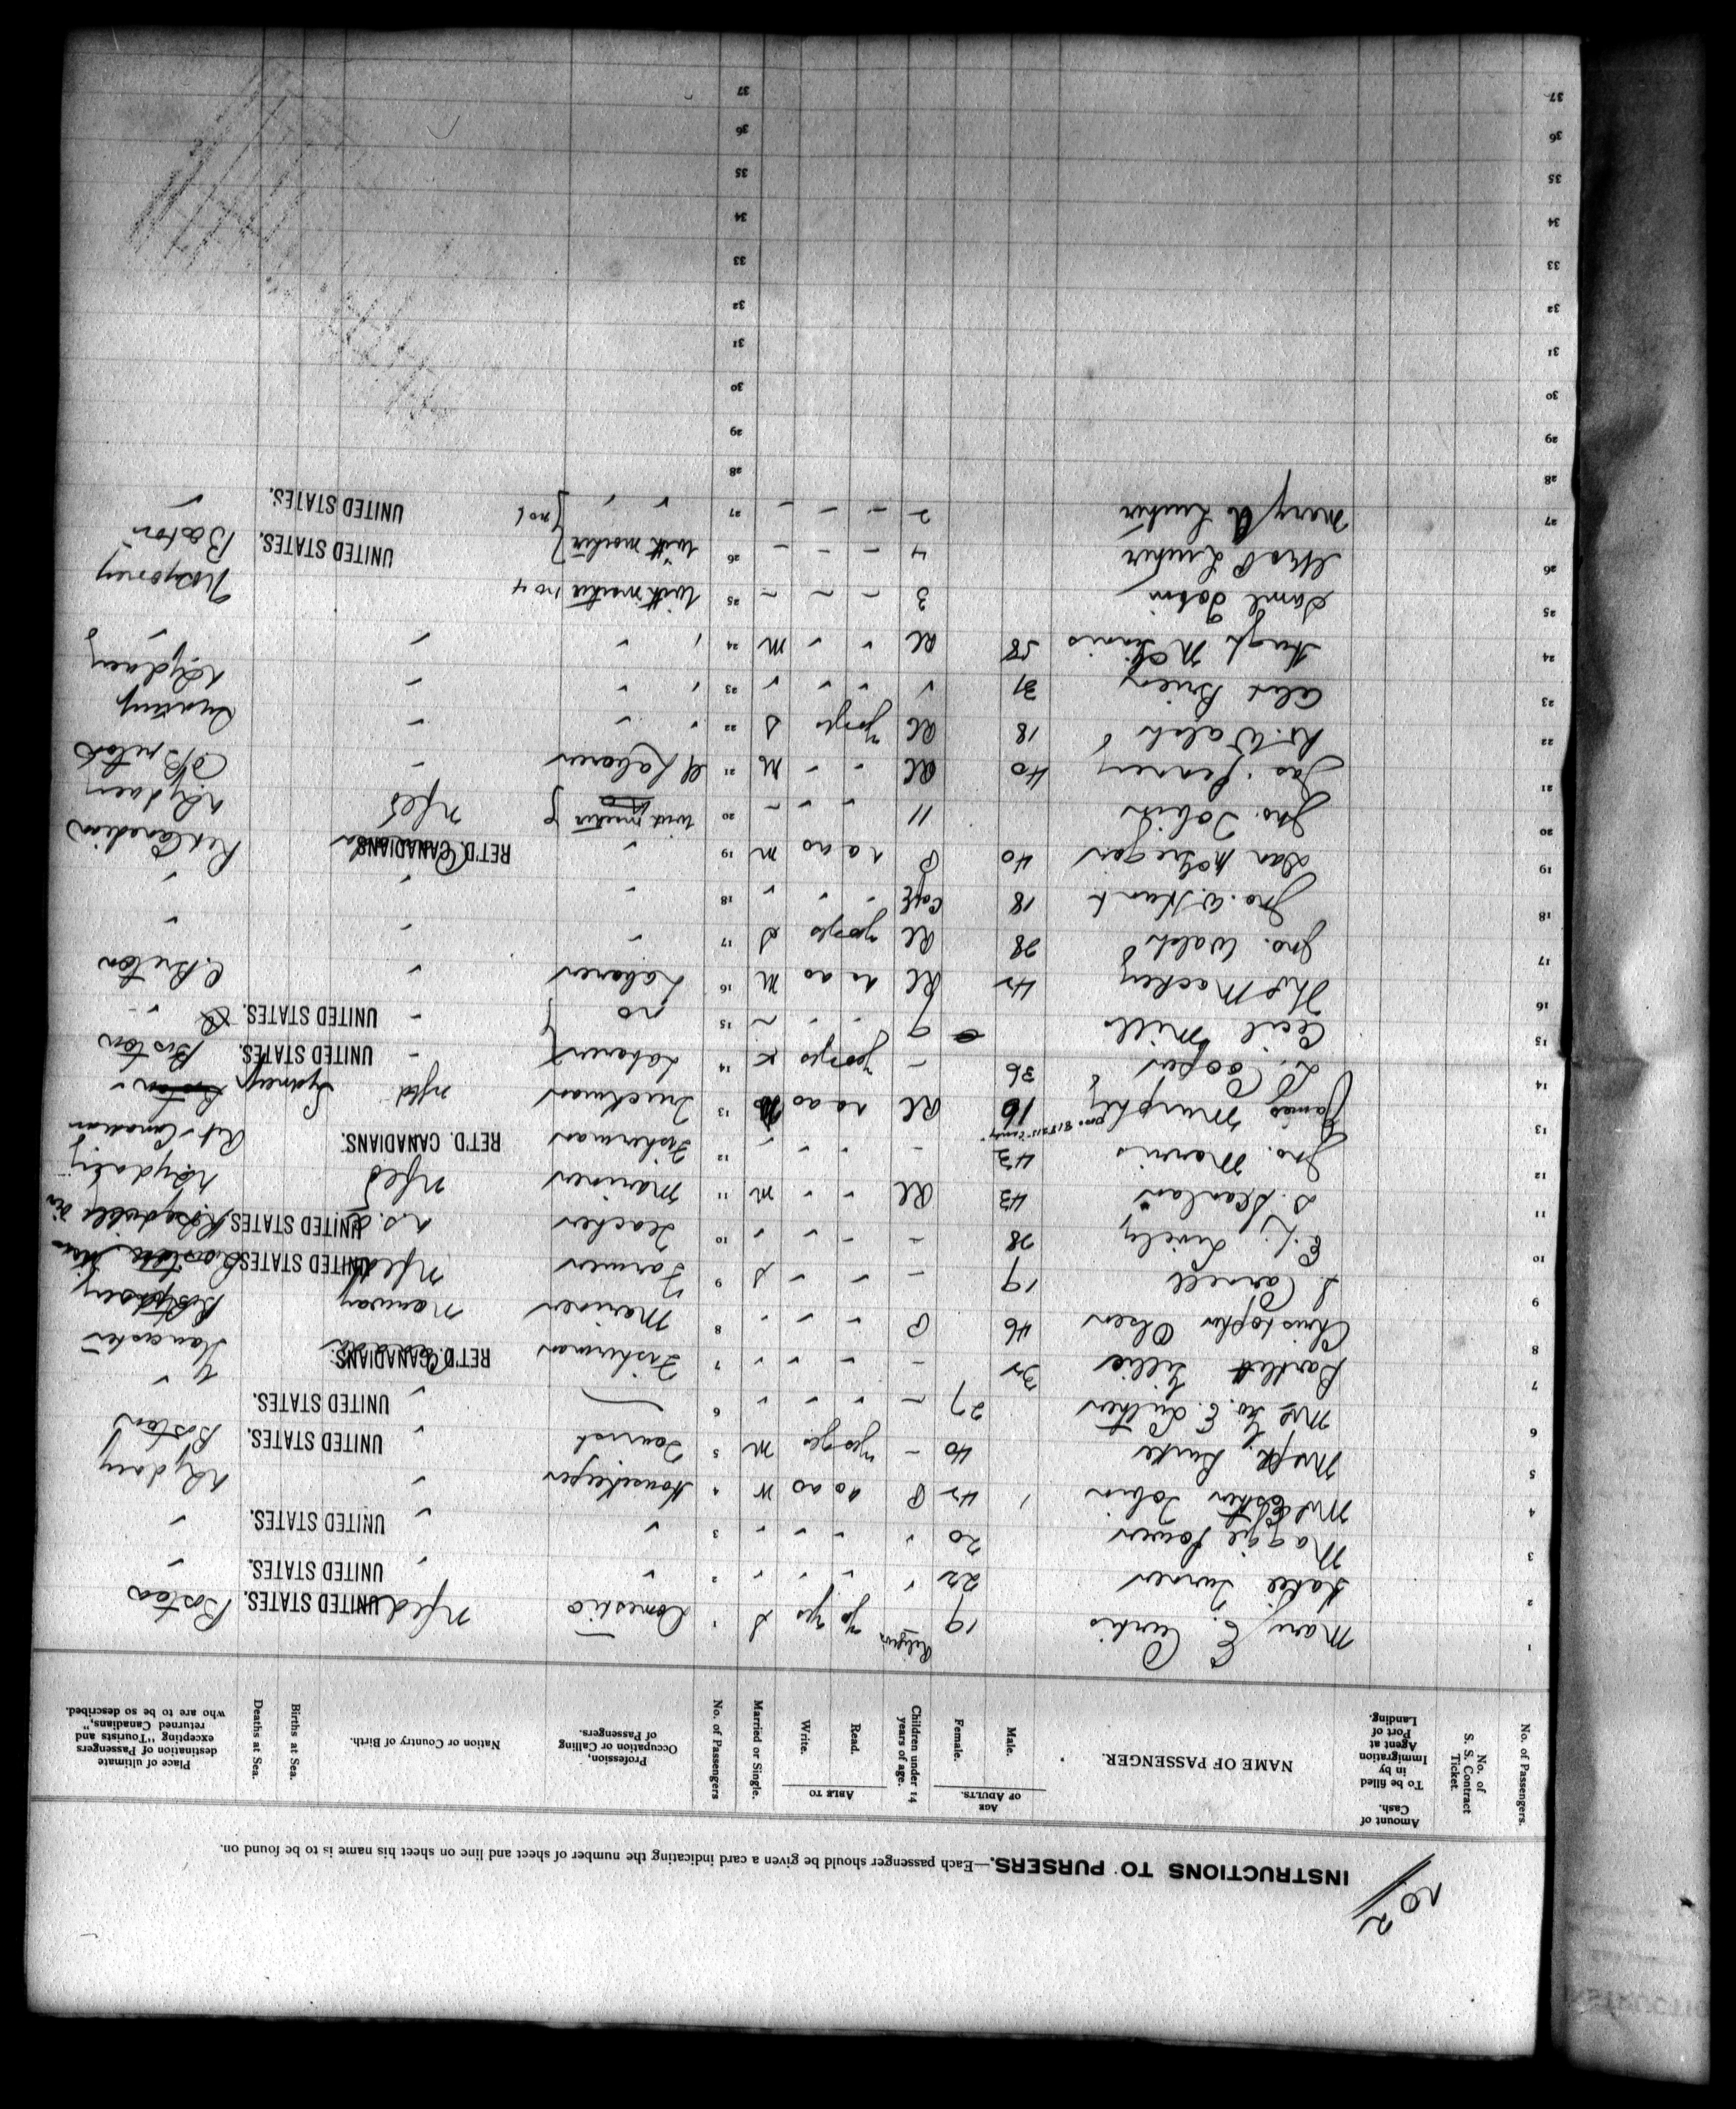 No 2
INSTRUCTIONS TO PURSERS.—Each passenger should be given a card indicating the number of sheet and line on sheet his name is to be found on.
No. of Passengers.
No. of S. S. Contract Ticket.
Amount of Cash. To be filled in by Immigration Agent at Port of Landing.
NAME OF PASSENGER.
AGE OF ADULTS.
Male.
Female.
Children under 14 years of age.
ABLE TO
Read.
Write.
Married or Single.
No. of Passengers
Profession, Occupation or Calling of Passengers.
Nation or Country of Birth.
Births at Sea.
Deaths at Sea.
Place of ultimate destination of Passengers excepting "Tourists and returned Canadians," who are to be so described.
Religion
1 Mary E. Curtis 19 yes yes S 1 Domestic Nfld UNITED STATES. Boston
2 Katie Turner 22 " " " " 2 " " UNITED STATES. "
3 Maggie Power 20 " " " " 3 " " UNITED STATES. "
4 Mrs Esther Tobin 1 42 P no no W 4 Housekeeper " N Sydney
5 Mrs Burke 40 – yes yes M 5 Tourist " UNITED STATES. Boston
6 Mrs Geo. E. Luther 27 – " " " 6 " UNITED STATES. "
7 Bartlett Gillie 32 – " " " 7 Fisherman RET'D. CANADIANS. Lancaster
8 Christopher Olsen 46 P " " " 8 Mariner Norway
9 J Carnell 19 – " " S 9 Farmer Nfld UNITED STATES
10 E. J. Lively 28 – " " " 10 Teacher N.S. UNITED STATES
11 S. Scanlan 43 RC " " M 11 Mariner Nfld N Sydney
12 Jno. Morris 43 – " " " 12 Fisherman RET'D. CANADIANS. Ret. Canadian
13 James Murphy 16 RC no no 13 Truckman Nfld Sydney
14 L. Cooper 36 – yes yes 14 Laborer " UNITED STATES. Boston
15 Cecil Mills 9 " " ~ 15 no " UNITED STATES. "
16 Thos Mackey 42 RC no no M 16 Laborer " C. Breton
17 Jno. Walsh 28 RC yes yes S 17 " " "
18 Jno. W. Hunt 18 C of E " " " 18 " " "
19 Dan McGregor 40 P no no M 19 " RET'D. CANADIANS. Ret Canadian
20 Jno. Tobin 11 " " ~ 20 with mother Nfld N Sydney
21 Jas. Kearney 40 RC " " M 21 Laborer " C/Breton
22 Ks. Walsh 18 RC yes yes S 22 " " "
23 Alex Brien 31 " " " " 23 " " " N Sydney
24 Hugh McGinnis 58 RC " " M 24 " " " "
25 Saml Tobin 3 – ~ ~ 25 with mother no 4
26 Luther 4 – – – 26 with mother UNITED STATES. Boston
27 Mary A Luther 2 – – – 27 " " no 6 UNITED STATES. "
28 28
29 29
30 30
31 31
32 32
33 33
34 34
35 35
36 36
37 37